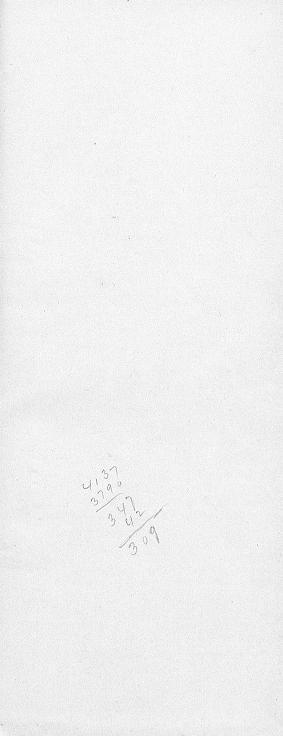 4137
3790
347
42
309